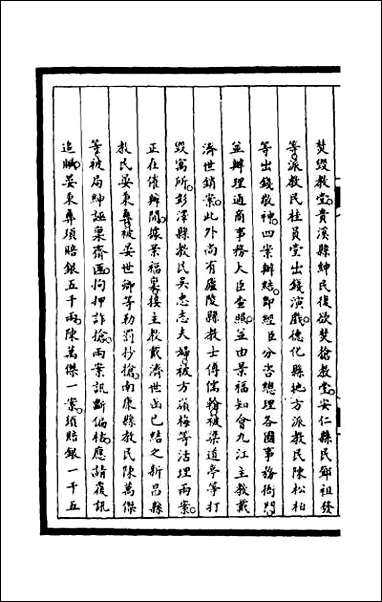 焚毀教堂。貴溪縣紳民復欲焚搶教堂。安仁縣民鄧祖發
等派教民杜員堂出錢演戲。德化縣地方派教民陳松柏
等出錢敬神。四案辦賠。即經臣分咨總理各國事務衙門。
並辦理通商事務大臣查照。並由景福知會九江主教戴
濟世銷案。此外尚有廬陵縣教士傅儒翰被梁道亭等打
毀寓所。彭澤縣教民吳忠志夫婦被方嶺梅等活埋兩案。
正在催辦間。據景福稟。接主教戴濟世函已結之新昌縣
教民晏秉彝被晏世卿等勒罰抄搶。南康縣教民陳萬傑
等被局紳誣稟齊匪。拘押詐搶。兩案訊斷偏枯。應請覆訊
追贓。晏秉彝須賠銀五千兩。陳萬傑一案。須賠銀一千五